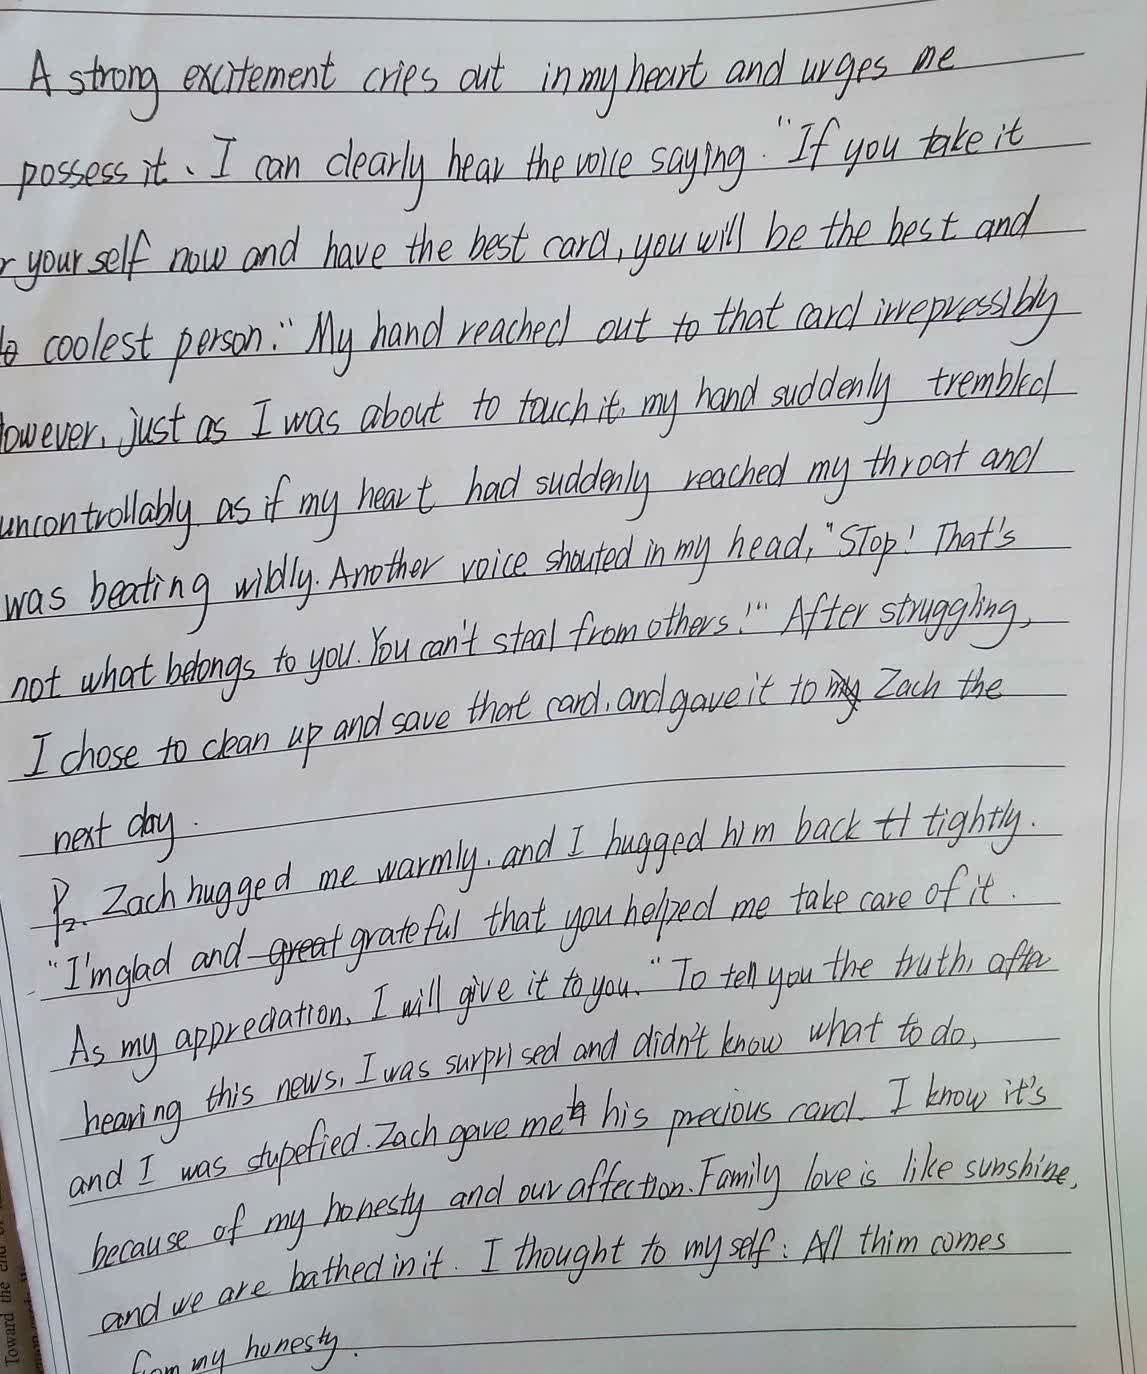 A strong excitement cries out in my heart and urges me
possess it、I can clearly hear the voice saying. "If you take it
r yourself now and have the best card, you will be the best and
coolest person." My hand reached out to that card irrepressibly
owever, just as I was about to touch it, my hand suddenly trembled
uncontrollably as if my heart had suddenly reached my throat and
was beating wildly. Another voice shouted in my head, "STop! That's
not what belongs to you. You can't steal from others!"" After struggling,
I chose to clean up and save that card, and gave it to Zach the
next day.
P2. Zach hugged me warmly, and I hugged him back tightly.
"I'm glad and grateful that you helped me take care of it.
As my appreciation, I will give it to you." To tell you the truth, after
hearing this news, I was surprised and didn't know what to do,
and I was stupefied. Zach gave me his precious card. I know it's
because of my honesty and our affection. Family love is like sunshine,
and we are bathed in it. I thought to myself: All thim comes
from my honesty.
Toward the end of